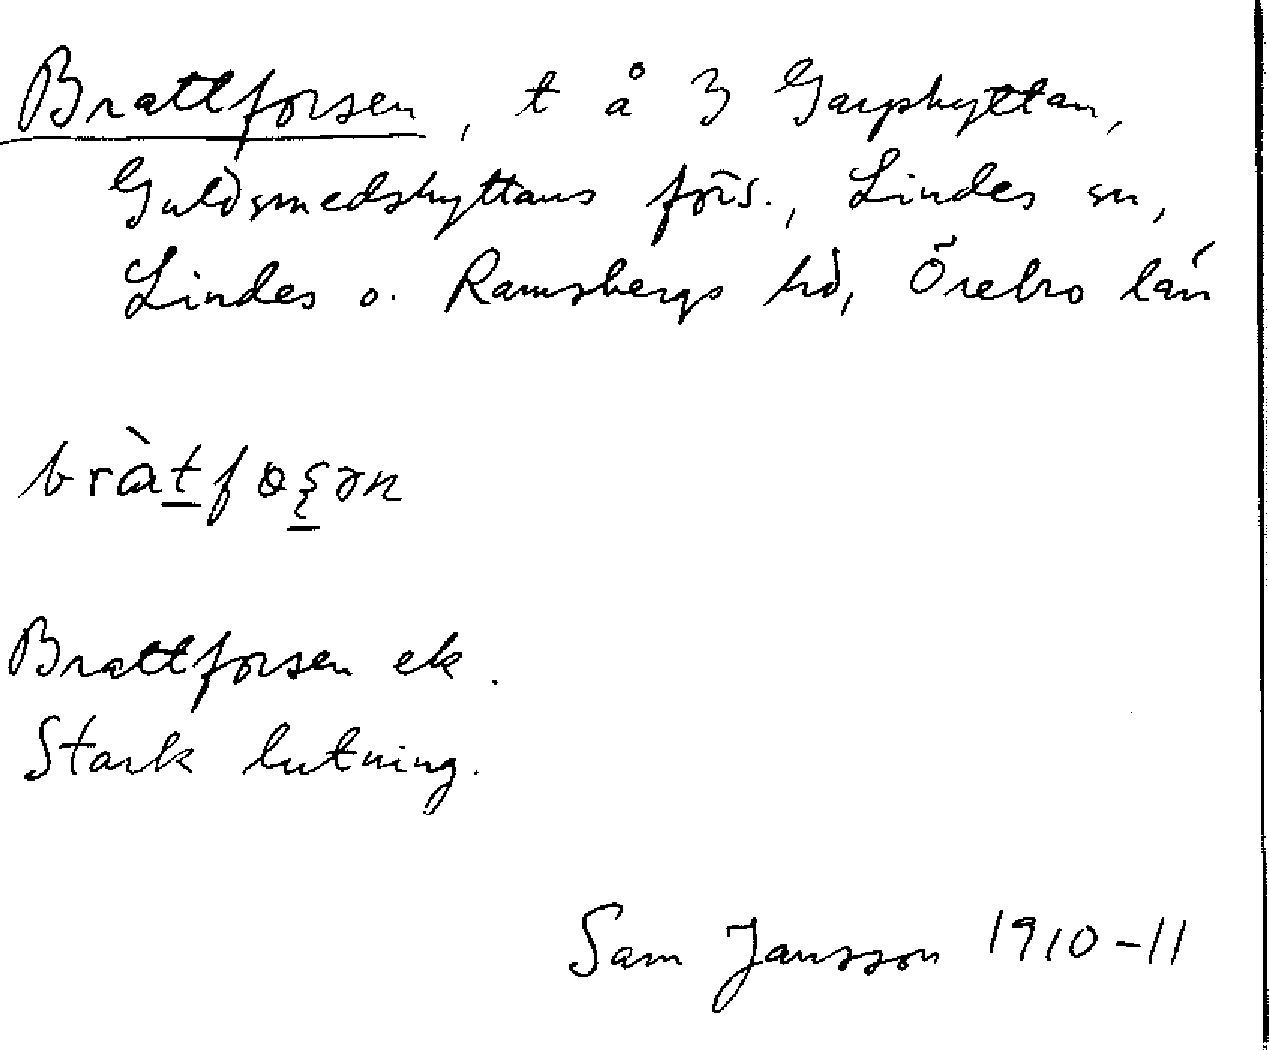 Brattforsen, t å 3 Garphyttan,
Guldsmedshyttans förs., Lindes sn,
Lindes o. Ramsbergs hd, Örebro län
bràtfɵʂən
Brattforsen ek.
Stark lutning.
Sam Jansson 1910-11